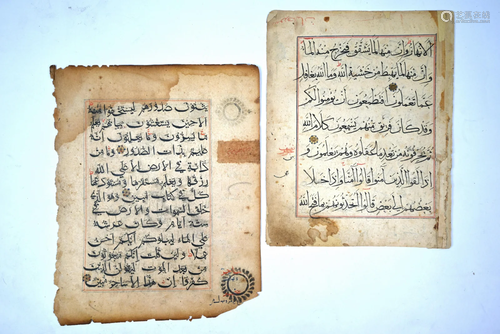 الانهار وان منها لما يشقق فيخرج منه الماء
وان منها لما يهبط من خشية الله وما الله بغافل
عما تعملون افتطمعون ان يؤمنوا لكم
وقد كان فريق منهم يسمعون كلام الله
ثم يحرفونه من بعد ما عقلوه وهم يعلمون و
اذا لقوا الذين امنوا قالوا امنا واذا خلا
بعضهم الى بعض قالوا اتحدثونهم بما فتح الله
يثنون صدورهم ليستخفوا منه
الا حين يستغشون ثيابهم يعلم
ما يسرون وما يعلنون انه
عليم بذات الصدور وما من
دابة في الارض الا على الله
رزقها ويعلم مستقرها ومستودعها
كل في كتاب مبين وهو الذي
خلق السموات والارض في
ستة ايام وكان عرشه
على الماء ليبلوكم ايكم احسن
عملا ولئن قلت انكم مبعوثون
من بعد الموت ليقولن الذين
كفروا ان هذا الا سحر مبين